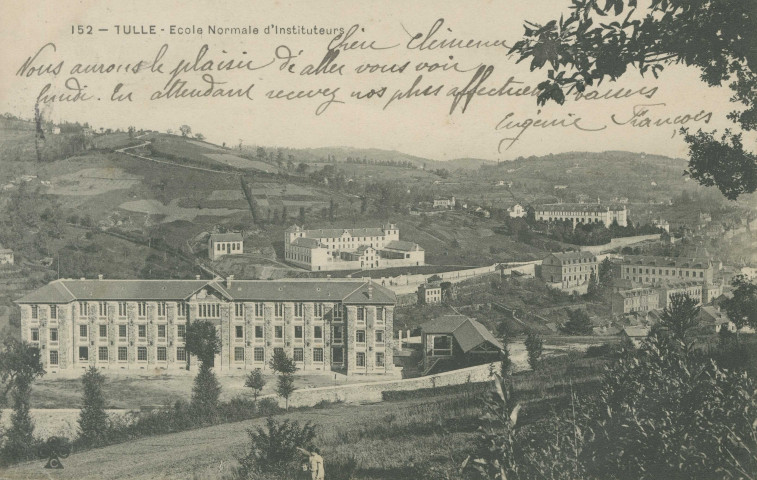 152 — TULLE - Ecole Normale d'Instituteurs
Chère Clémence
Nous aurons le plaisir d'aller vous voir
lundi. En attendant recevez nos plus affectueux baisers
Eugénie François